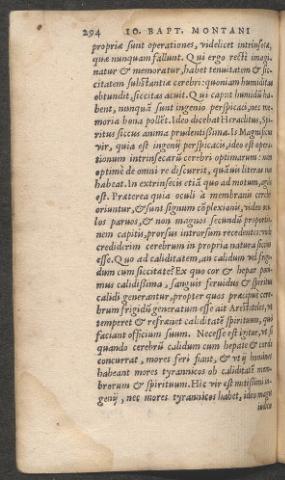 294 IO. BAPT. MONTANI
propriæ sunt operationes, videlicet intrinsecæ,
quæ nunquam fallunt. Qui ergo recti imagi-
natur & memoratur, habet tenuitatem & sic-
citatem substantiæ cerebri: quoniam humiditas
obtundit, siccitas acuit. Qui caput humidū ha-
bent, nunquã sunt ingenio perspicaci, nec me-
moria bona pollẽt. Ideo dicebat Heraclitus, Spi-
ritus siccus anima prudentißima. Is Magnificus
vir, quia est ingenij perspicacis, ideo est opera-
tionum intrinsecarū cerebri optimarum: non
optimè de omni re discurrit, quãuis literas non
habeat. In extrinsecis etiã quo ad motum, agilis
est. Præterea quia oculi à membranis cerebri
oriuntur, & sunt signum cõplexionis, video oculos
paruos, & non magnos secundū proportio-
nem capitis, prorsus introrsum recedentes: vnde
crediderim cerebrum in propria natura siccius
esse. Quo ad caliditatem, an calidum vel frigi-
dum cum siccitate? Ex quo cor & hepar pri-
mus calidißima, sanguis feruidus & spiritus
calidi generantur, propter quos præcipuè cere-
brum frigidū generatum esse ait Aristoteles, vt
temperet & refrænet caliditatẽ spirituum, qui
faciant officium suum. Necesse est igitur, vt si
quando cerebrū calidum cum hepate & corde
concurrat, mores feri fiant, & vt ij homines
habeant mores tyrannicos ob caliditatẽ mem-
brorum & spirituum. Hic vir est mitißimi in-
genij, nec mores tyrannicos habet, ideo magis
iudico